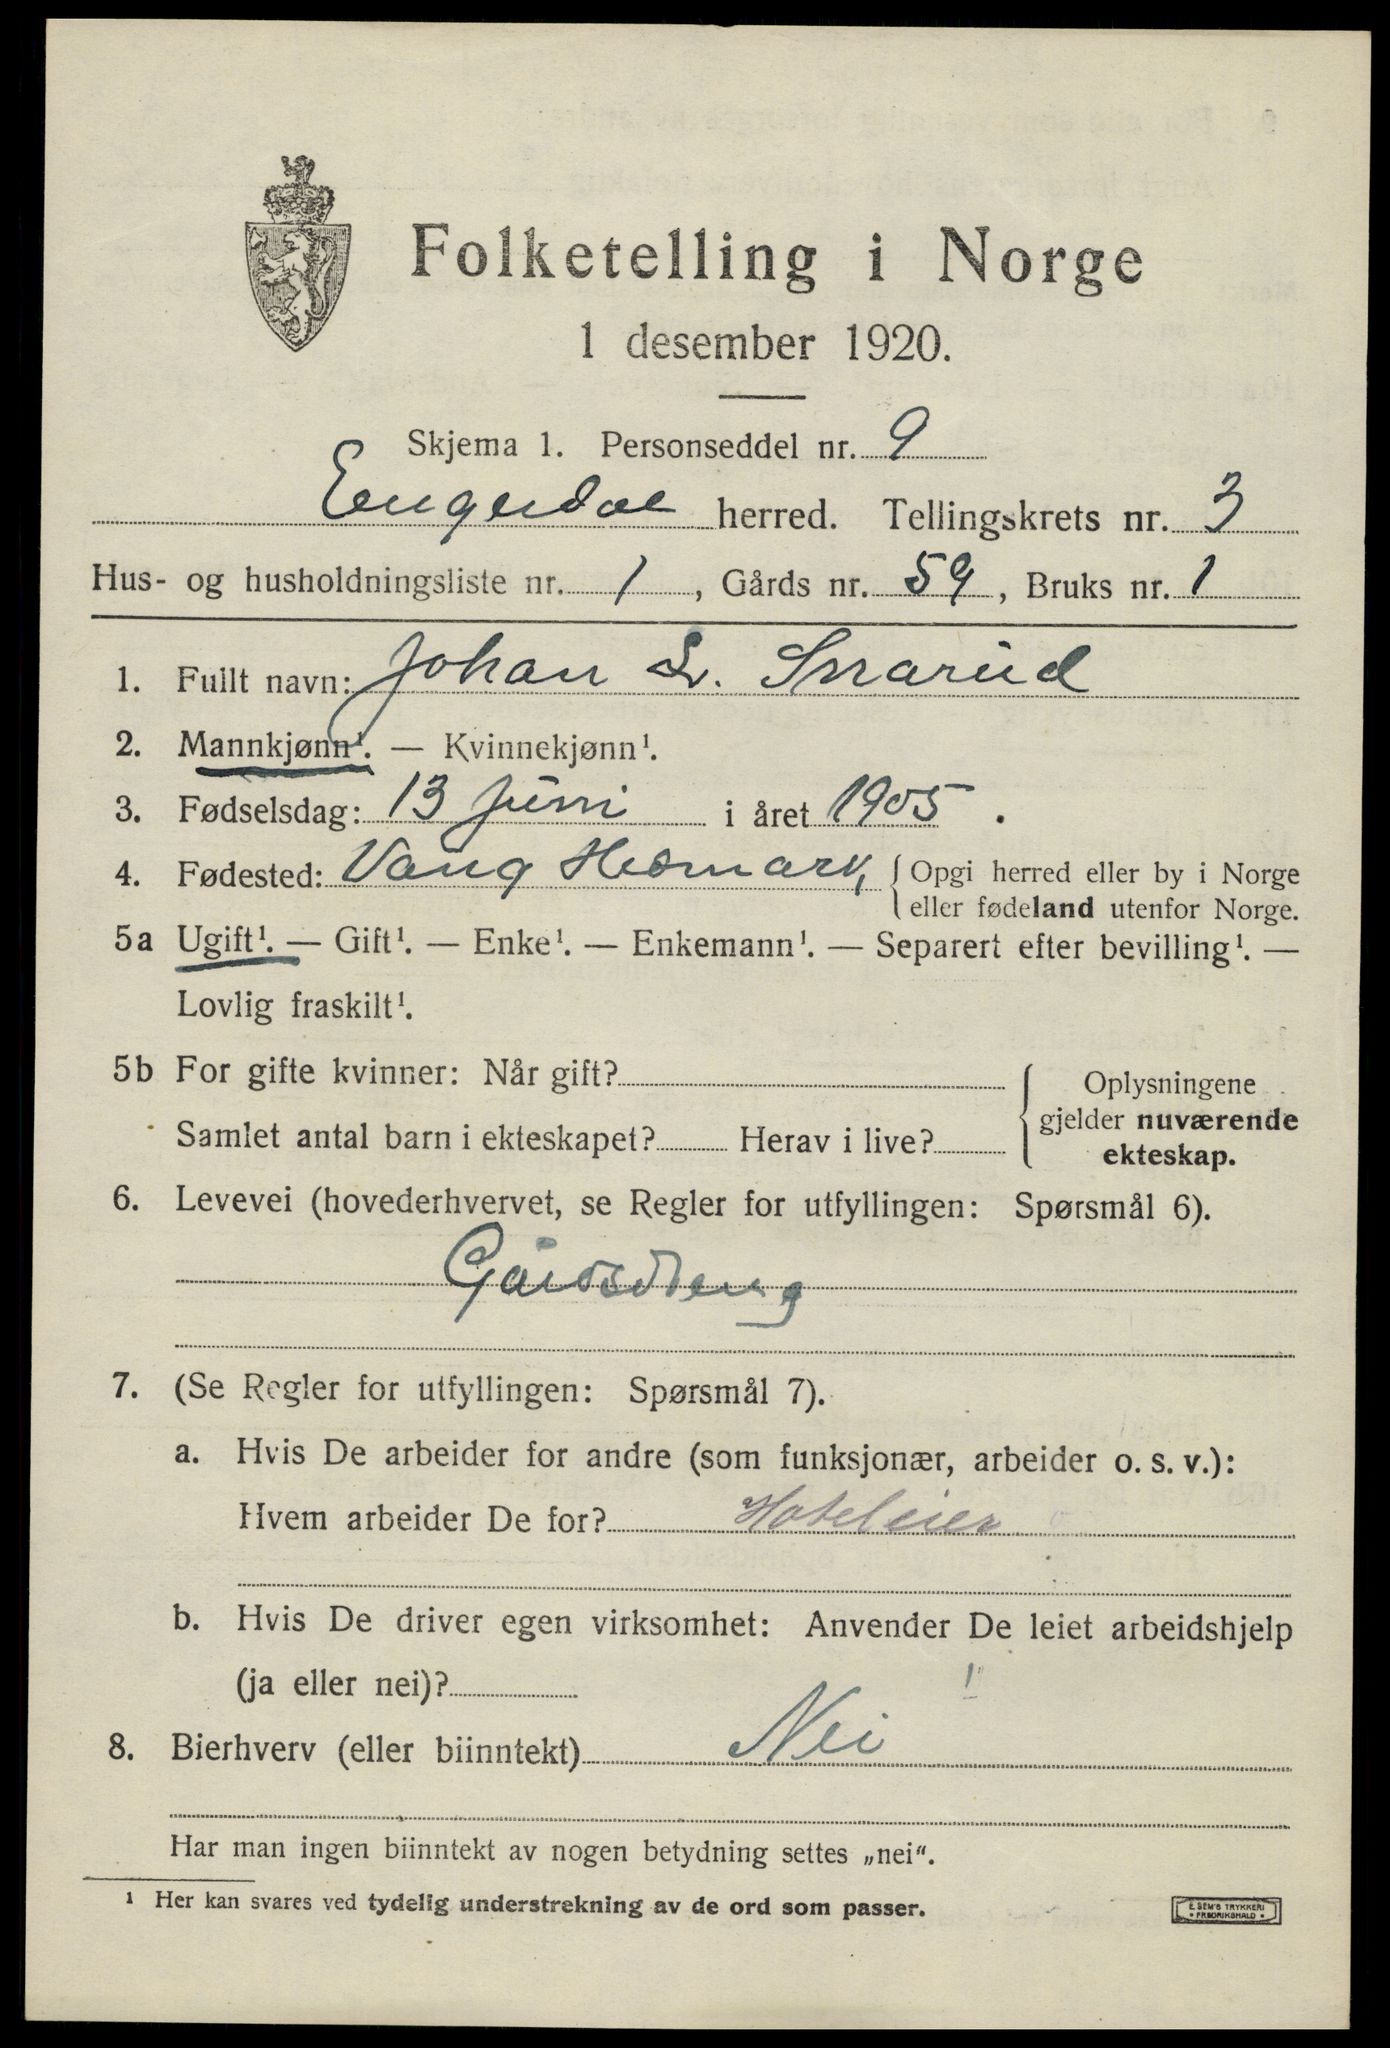 Folketelling i Norge
1 desember 1920.
Skjema 1. Personseddel nr. 9
Engerdal herred. Tellingskrets nr. 3
Hus- og husholdningsliste nr. 1, Gårds nr. 59, Bruks nr. 1
1. Fullt navn: Johan L. Snarud
2. Mannkjønn¹. — Kvinnekjønn¹.
3. Fødselsdag: 13 juni i året 1905.
4. Fødested: Vang Hedmark, { Opgi herred eller by i Norge
eller fødeland utenfor Norge.
5a Ugift¹. — Gift¹. — Enke¹. — Enkemann¹. — Separert efter bevilling¹. —
Lovlig fraskilt¹.
5b For gifte kvinner: Når gift?
Samlet antal barn i ekteskapet? Herav i live?
Oplysningene
gjelder nuværende
ekteskap.
6. Levevei (hovederhvervet, se Regler for utfyllingen: Spørsmål 6).
Gårdsdreng
7. (Se Regler for utfyllingen: Spørsmål 7).
a. Hvis De arbeider for andre (som funksjonær, arbeider o. s. v.):
Hvem arbeider De for? Hoteleier
b. Hvis De driver egen virksomhet: Anvender De leiet arbeidshjelp
(ja eller nei)?
8. Bierhverv (eller biinntekt) Nei
Har man ingen biinntekt av nogen betydning settes „nei“.
¹ Her kan svares ved tydelig understrekning av de ord som passer.
E. SEM'S TRYKKERI
• FREDRIKSHALD •